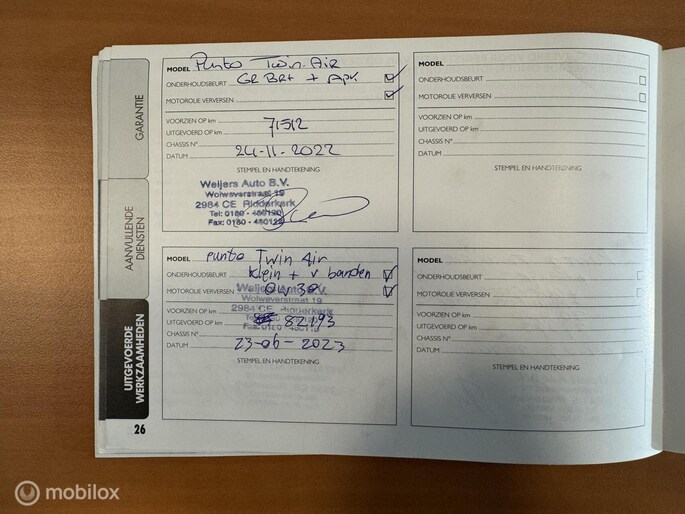 GARANTIE
AANVULLENDE
DIENSTEN
UITGEVOERDE
WERKZAAMHEDEN
26
MODEL Punto Twin-Air
ONDERHOUDSBEURT GR BRT + APK
MOTOROLIE VERVERSEN
VOORZIEN OP km
UITGEVOERD OP km 71512
CHASSIS N°
DATUM 24-11-2022
STEMPEL EN HANDTEKENING
Weijers Auto B.V.
Wolweverstraat 19
2984 CE Ridderkerk
Tel: 0180 -
Fax: 0180 -
MODEL
ONDERHOUDSBEURT
MOTOROLIE VERVERSEN
VOORZIEN OP km
UITGEVOERD OP km
CHASSIS N°
DATUM
STEMPEL EN HANDTEKENING
MODEL Punto Twin Air
ONDERHOUDSBEURT Klein + v banden
MOTOROLIE VERVERSEN 0W30
Weijers Auto B.V.
Wolweverstraat 19
2984 CE
VOORZIEN OP km
UITGEVOERD OP km 82193
CHASSIS N°
DATUM 23-06-2023
STEMPEL EN HANDTEKENING
MODEL
ONDERHOUDSBEURT
MOTOROLIE VERVERSEN
VOORZIEN OP km
UITGEVOERD OP km
CHASSIS N°
DATUM
STEMPEL EN HANDTEKENING
mobilox